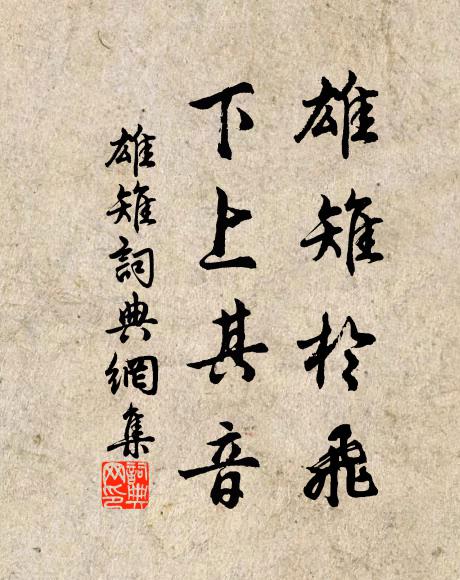 雄雉於飛
下上其音
雄雉詞典網集
詞典
网印